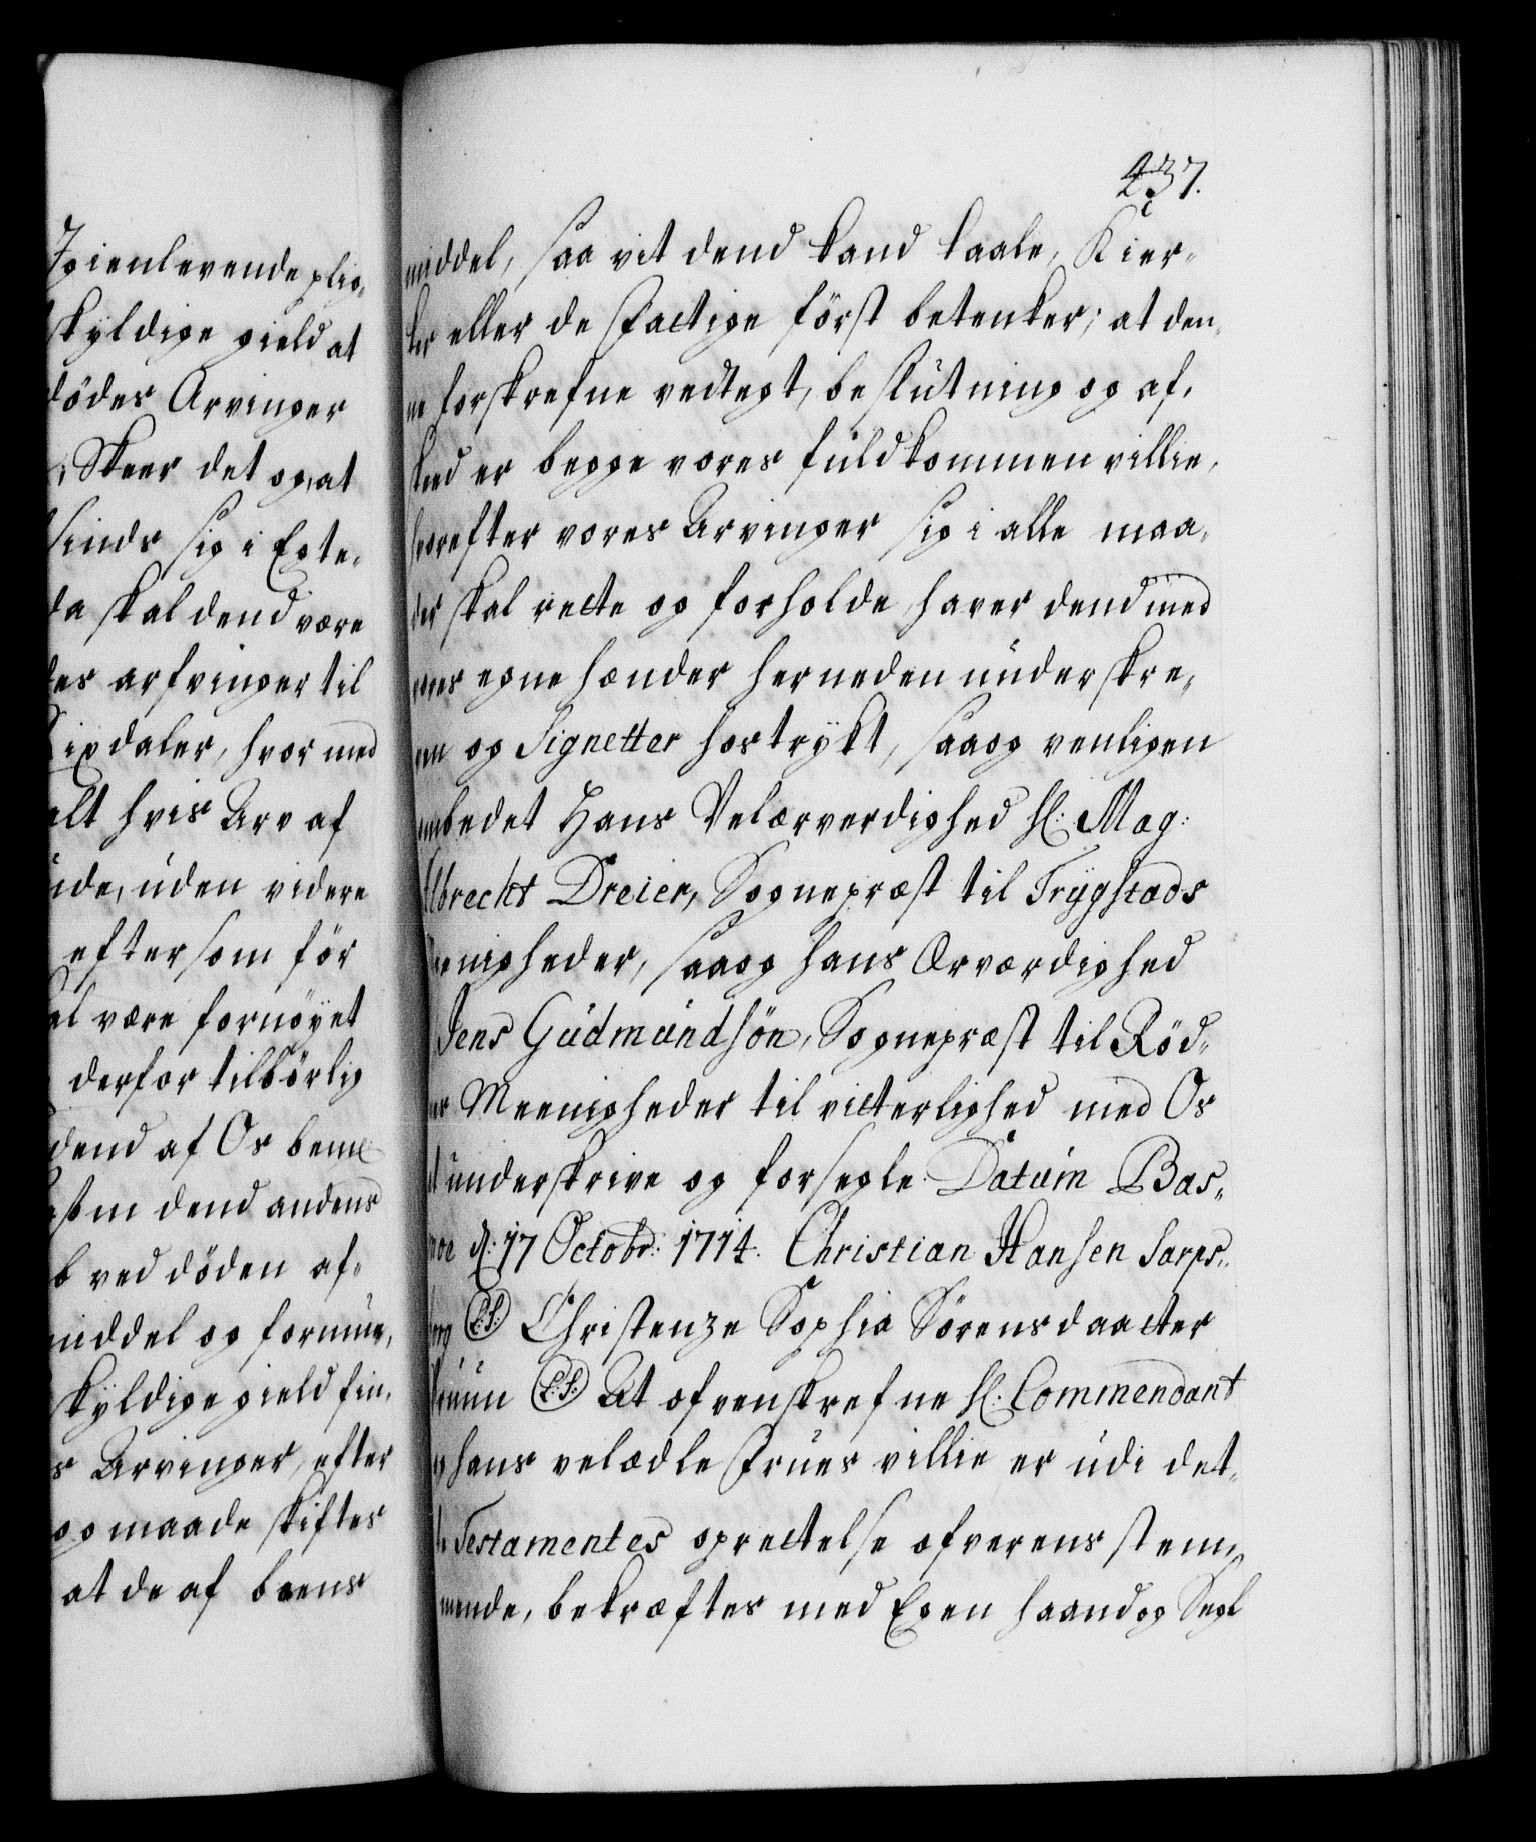 Igienlevende plig„
skyldige gield at
dödes Arvinger
Skeer det og, at
sinds sig i Egte„
da skal dend være
des arfvinger til
Rixdaler, hvor med
alt hvis Arv af
uden videre
eftersom för
være fornöyet
derfor tilbörlig
dend af Os bem
dend andens
ved döden af„
middel og formue,
skyldige gield fin„
Arvinger, efter
og maade skiftes
at de af boens
237.
middel, saa vit dend kand taale, Kier„
ker eller de Fattige först betenker; at den„
ne forskrefne vedtegt, beslutning og af„
sked er begge vores fuldkommen villie,
hvorefter vores Arvinger sig i alle maa„
der skal rette og forholde, haver dend med
vores egne hænder herneden underskre„
ven og Signetter hostrykt, saaog venligen
ombedet Hans Velærverdighed Hr: Mag:
Albrecht Dreier, Sognepræst til Trygstads
Meenigheder, saaog hans Ærværdighed
Jens Gudmundsön, Sognepræst til Röd„
Meenigheder til vitterlighed med Os
at underskrive og forsegle. Datum Bas„
moe d: 17 Octobr: 1714. Christian Hansen Sarps„
borg (L:S:) Christenze Sophia Sörensdaatter
(L:S:) At ofvenskrefne Hr: Commendant
og hans velædle Frues villie er udi det„
te Testamentes oprettelse ofverensstem„
mende, bekræftes med Egen haand og Segl